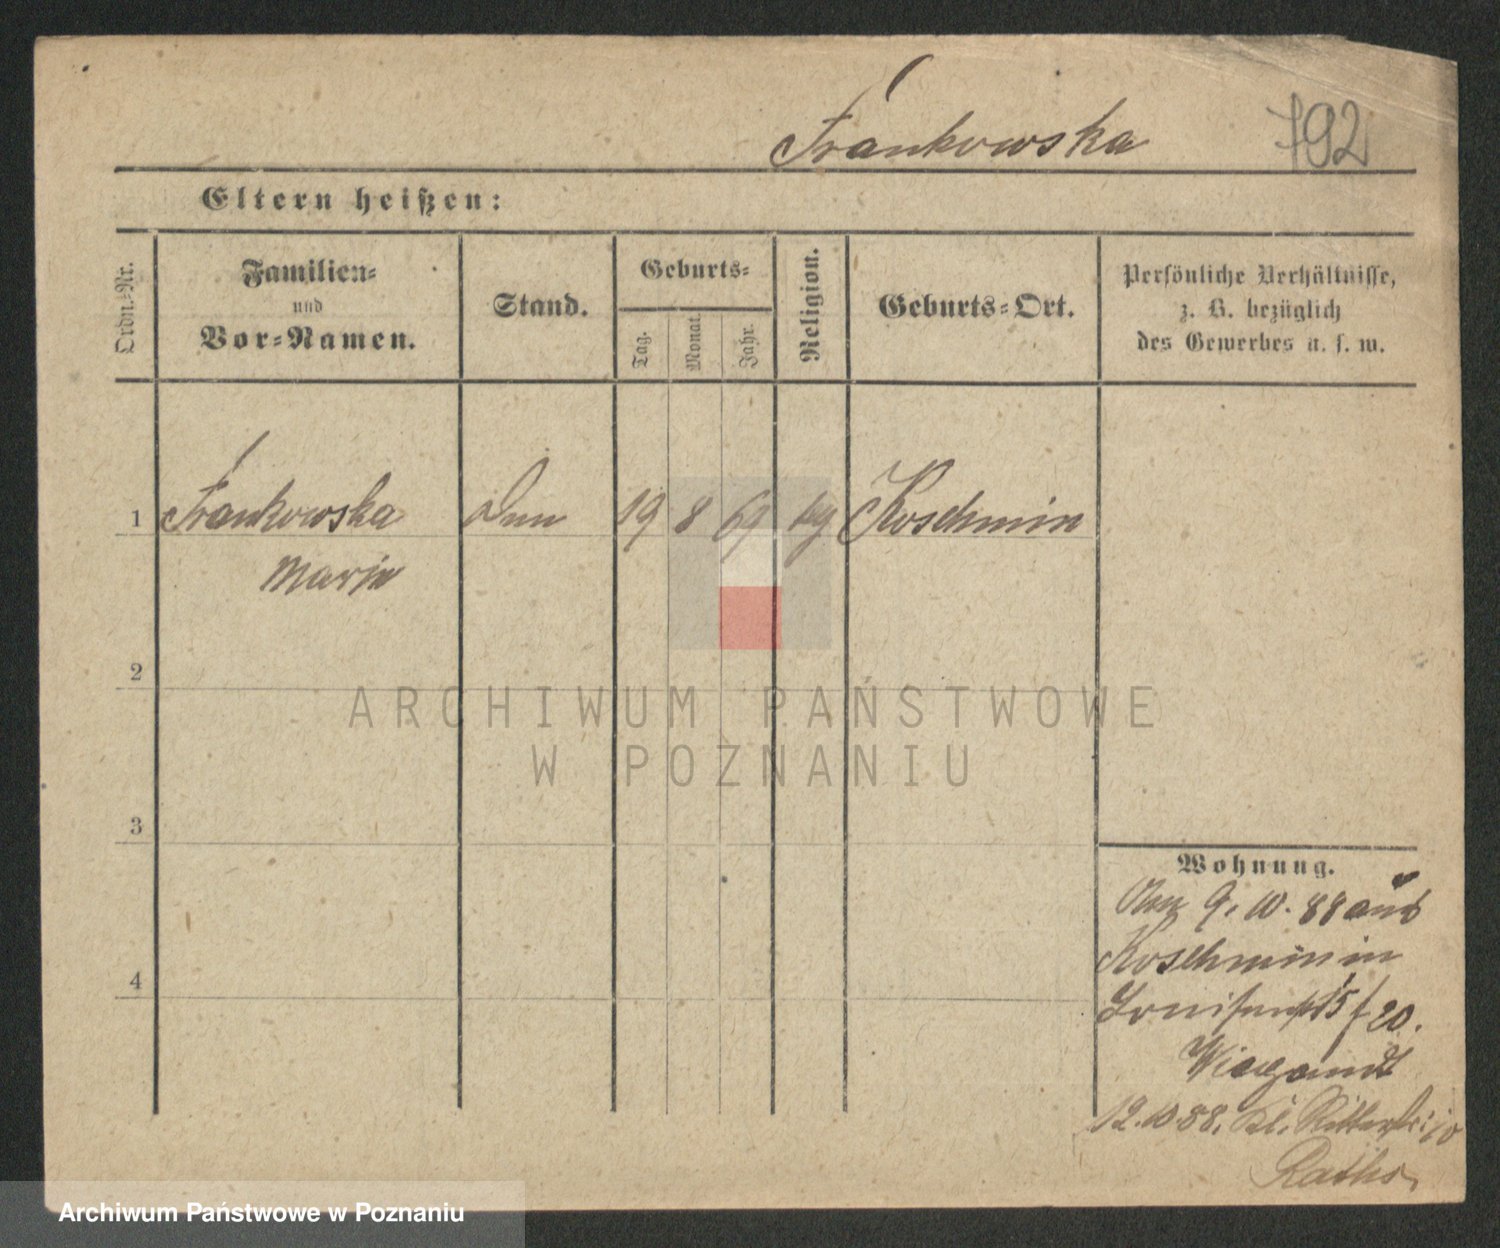 Frankowska 792
Eltern heißen:
Ordn.-Nr.
Familien-
und
Vor-Namen.
Stand.
Geburts-
Tag.
Monat.
Jahr.
Religion.
Geburts-Ort.
Persönliche Verhältnisse,
z. B. bezüglich
des Gewerbes u. s. w.
1 Frankowska 19 8 69 kg Koschmin
Marie
2
3
4
Wohnung.
9. 10. 88 aus
Koschmin in
15 / 20.
Wiegandt
12. 10. 88. Kl. Ritterstr: 10
Raths
ARCHIWUM PAŃSTWOWE
W POZNANIU
Archiwum Państwowe w Poznaniu